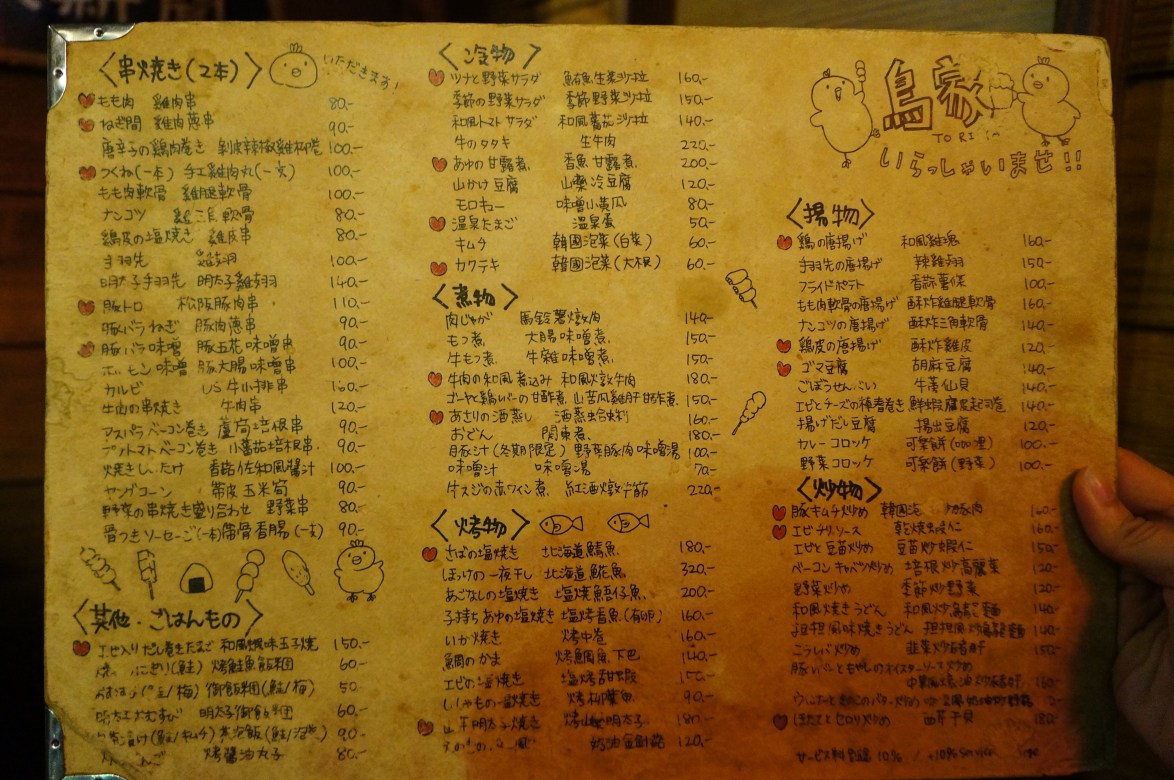 〈串焼き(2本)〉
いただきます!
もも肉 雞肉串 80.-
ねぎ間 雞肉蔥串 90.-
唐辛子の鶏肉巻き 剝皮辣椒雞柳捲 100.-
つくね(一本) 手工雞肉丸(一支) 100.-
もも肉軟骨 雞腿軟骨 100.-
ナンコツ 雞三角軟骨 80.-
鶏皮の塩焼き 雞皮串 80.-
手羽先 雞翅 100.-
明太子手羽先 明太子雞翅 140.-
豚トロ 松阪豚肉串 110.-
豚バラねぎ 豚肉蔥串 90.-
豚バラ味噌 豚五花味噌串 90.-
ホルモン味噌 豚大腸味噌串 100.-
カルビ US牛小排串 160.-
牛肉の串焼き 牛肉串 120.-
アスパラベーコン巻き 蘆筍培根串 90.-
プットマトベーコン巻き 小番茄培根串 90.-
焼きしいたけ 香菇佐和風醬汁 100.-
ヤングコーン 帶皮玉米筍 90.-
野菜の串焼き盛り合わせ 野菜串 80.-
骨つきソーセージ(一本) 帶骨香腸(一支) 90.-
〈其他・ごはんもの〉
エビ入りだし巻きたまご 和風蝦味玉子焼 150.-
おにぎり(鮭) 烤鮭魚飯糰 60.-
(鮭/梅) 御飯糰(鮭/梅) 50.
明太子おむすび 明太子御飯糰 60.-
お茶漬け(鮭/キムチ) 茶泡飯(鮭/泡菜) 90.-
烤醬油丸子 80.-
〈冷物〉
ツナと野菜サラダ 鮪魚生菜沙拉 160.-
季節の野菜サラダ 季節野菜沙拉 150.-
和風トマトサラダ 和風蕃茄沙拉 140.-
牛のタタキ 生牛肉 220.-
あゆの甘露煮 香魚甘露煮 200.-
山かけ豆腐 山藥冷豆腐 120.-
モロキュー 味噌小黃瓜 80.-
温泉たまご 溫泉蛋 50.-
キムチ 韓國泡菜(白菜) 60.-
カクテキ 韓國泡菜(大根) 60.-
〈煮物〉
肉じゃが 馬鈴薯燉肉 140.-
もつ煮 大腸味噌煮 150.-
牛もつ煮 牛雜味噌煮 150.-
牛肉の和風煮込み 和風燉牛肉 180.-
ゴーヤと鶏レバーの甘酢煮 山苦瓜雞肝甘酢煮 150.-
あさりの酒蒸し 酒蒸蛤蜊 160.-
おどん 関東煮 180.-
豚汁(冬期限定) 野菜豚肉味噌湯 100.-
味噌汁 味噌湯 70.-
牛スジの赤ワイン煮 紅酒燉牛筋 220.-
〈烤物〉
さばの塩焼き 北海道鯖魚 180.-
ほっけの一夜干し 北海道鮀魚 320.-
あごなしの塩焼き 塩焼鯃仔魚 200.-
子持ちあゆの塩焼き 塩烤香魚(有卵) 160.-
いか焼き 烤中卷 160.-
鯛のかま 烤鯛魚下巴 140.-
エビの塩焼き 塩烤甜蝦 150.-
ししゃもの塩焼き 烤柳葉魚 90.-
山芋明太子焼き 烤山藥明太子 180.-
奶油金針菇 120.-
鳥家
TORI 家
いらっしゃいませ!!
〈揚物〉
鶏の唐揚げ 和風雞塊 160.-
手羽先の唐揚げ 辣雞翅 150.-
フライドポテト 香蒜薯條 100.-
もも肉軟骨の唐揚げ 酥炸雞腿軟骨 160.-
ナンコツの唐揚げ 酥炸三角軟骨 140.-
鶏皮の唐揚げ 酥炸雞皮 120.-
ゴマ豆腐 胡麻豆腐 140.-
ごぼうせんべい 牛蒡仙貝 140.-
エビとチーズの棒春巻き 鮮蝦腐皮起司卷 140.-
揚げだし豆腐 揚出豆腐 120.-
カレーコロッケ 可樂餅(咖哩) 100.-
野菜コロッケ 可樂餅(野菜) 100.-
〈炒物〉
豚キムチ炒め 韓國泡 炒豚肉 160.-
エビチリソース 乾燒蝦仁 160.-
エビと豆苗炒め 豆苗炒蝦仁 150.-
ベーコンキャベツ炒め 培根炒高麗菜 120.-
野菜炒め 季節炒野菜 120.-
和風焼きうどん 和風炒烏龍麵 140.-
担担風味焼きうどん 担担風炒烏龍麵 140.-
こうレバ炒め 韭菜炒豬肝 150.-
豚レバーともやしのオイスターソース炒め
160.-
ウィンナーときのこのバター炒め
ほたてとセロリ炒め 西芹干貝 180.-
サービス料金額10% / +10% Service